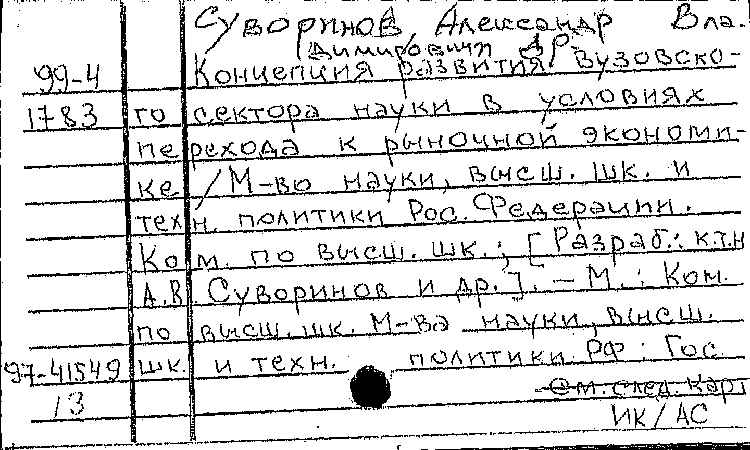 Суворинов, Александр Вла.
димирович др.
99-4 Концепция развития вузовско-
1783 го сектора науки в условиях
перехода к рыночной экономи-
ке / М-во науки, высш. шк. и
техн. политики Рос. Федерации.
Ком. по высш. шк.; [Разраб.: к.т.н
А.В. Суворинов и др.]. – М.: Ком.
по высш. шк. М-ва науки, высш.
97-41549 шк. и техн. политики РФ: Гос
13 См. след. карт
ИК/АС